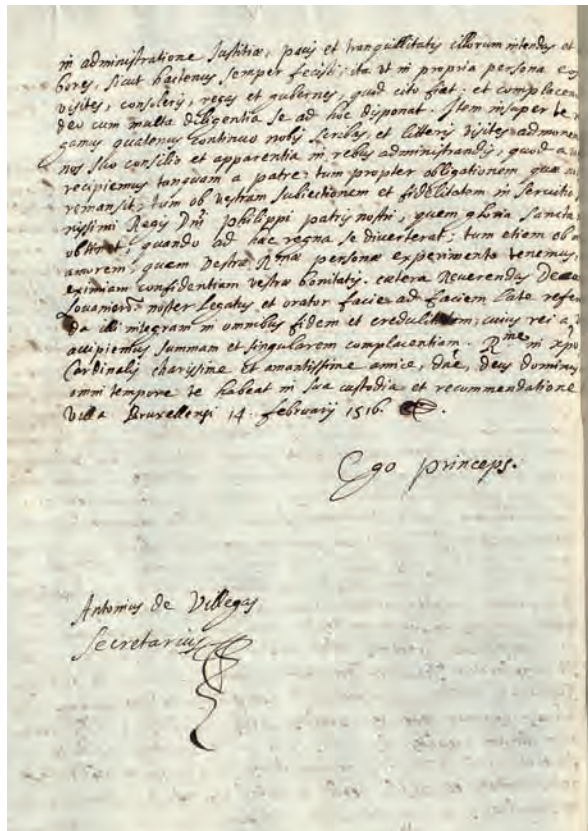 in administratione Justitiæ, pacis et tranquillitatis illorum intendas et
bores, sicut hactenus semper fecisti; ita ut in propria persona
visites, consoleris, regas et gubernes, quod cito fiat; et complacen
deo cum multa diligentia se ad hoc disponat. Item insuper te
gamus quatenus continuo nobis scribas, et litteris visites admonen
nos suo consilio et apparentia in rebus administrandis, quod a
recipiemus tanquam a patre; tum propter obligationem quæ
remansit; tum ob vestram subiectionem et fidelitatem in servitio
nissimi Regis Dni Philippi patris nostri, quem gloria sancta
obtinet, quando ad hæc regna se diverterat; tum etiam ob
amorem, quem vestræ Rmæ personæ experimento tenemus,
eximiam confidentiam vestræ bonitatis. cætera Reverendus
Louaniens noster Legatus et orator facie ad faciem late refe
da illi integram in omnibus fidem et credulitatem; cuius rei a
accipiemus summam et singularem complacentiam. Rme in xpo
Cardinalis charissime et amantissime amice, dne, deus dominus
omni tempore te habeat in sua custodia et recommendatione
Villa Bruxellensi 14 februarij 1516.
Ego princeps.
Antonius de Villegas
Secretarius